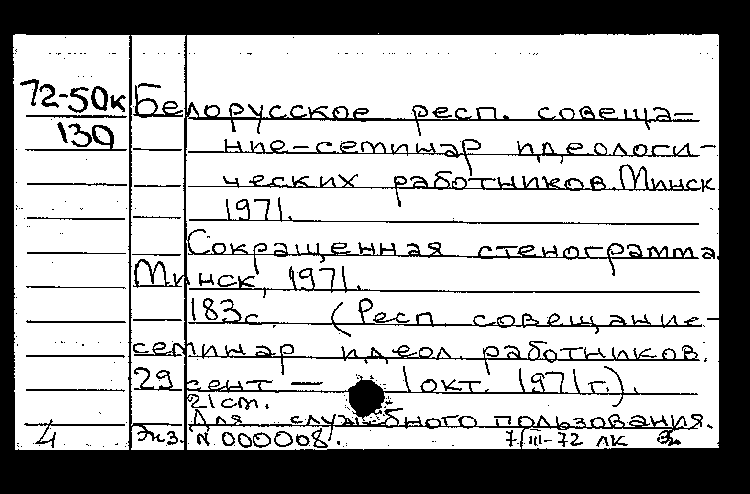 72-50к Белорусское респ. совеща=
130 ние-семинар идеологи-
ческих работников. Минск
1971.
Сокращенная стенограмма.
Минск, 1971.
183с. (Респ совещание-
семинар идеол. работников.
29 сент — 1 окт. 1971г.).
21см.
Для служебного пользования.
4 Экз. N 000008. 7/III-72 ЛК